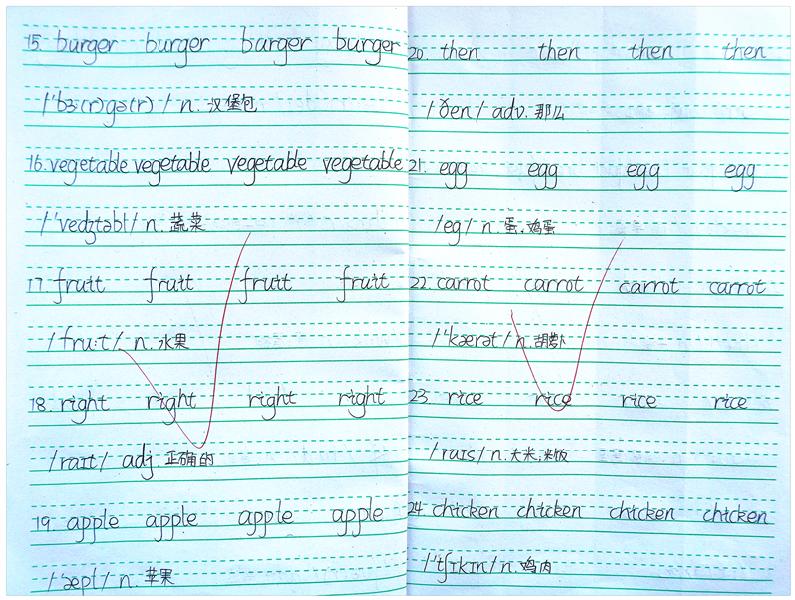 15. burger burger burger burger
/'bɜ:(r)gə(r)/ n. 汉堡包
16. vegetable vegetable vegetable vegetable
/'vedʒtəbl/ n. 蔬菜
17. fruit fruit fruit fruit
/fru:t/ n. 水果
18. right right right right
/raɪt/ adj 正确的
19. apple apple apple apple
/'æpl/ n. 苹果
20. then then then then
/ðen/ adv. 那么
21. egg egg egg egg
/eg/ n. 蛋,鸡蛋
22. carrot carrot carrot carrot
/'kærət/ n. 胡萝卜
23. rice rice rice rice
/raɪs/ n. 大米;米饭
24. chicken chicken chicken chicken
/'tʃɪkɪn/ n. 鸡肉